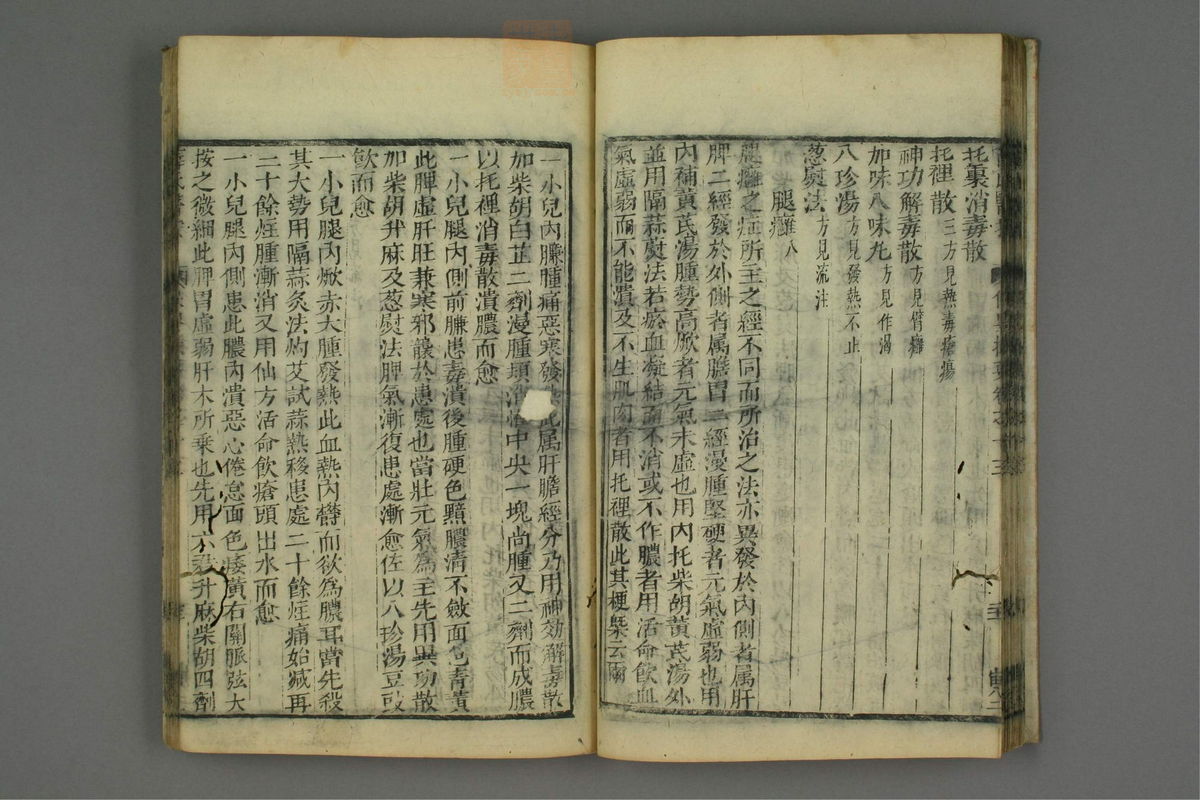 托裏消毒散
托裡散二方見熱毒瘡瘍
神功解毒散方見臂癰
加味八味丸方見作渴
八珍湯方見發熱不止
葱熨法方見流注
腿癰八
腿癰之症所主之經不同而所治之法亦異發於內側者属肝
脾二經發於外側者属膽胃二經漫腫堅硬者元氣虛弱也用
內補黃芪湯腫勢高焮者元氣未虛也用內托柴胡黃芪湯外
並用隔蒜熨法若瘀血凝結而不消或不作膿者用活命飲血
氣虛弱而不能潰及不生肌肉者用托裡散此其梗槩云爾
一小兒內臁腫痛惡寒發熱此属肝膽經分乃用神効解毒散
加柴胡白芷二劑漫腫頓消惟中央一塊尚腫又三劑而成膿
以托裡消毒散潰膿而愈
一小兒腿內側前臁患毒潰後腫硬色黯膿清不斂面色青黃
此脾虛肝旺兼寒邪襲於患處也當壯元氣為主先用異功散
加柴胡升麻及葱熨法脾氣漸復患處漸愈佐以八珍湯豆豉
飮而愈
一小兒腿內焮赤大腫發熱此血熱內鬱而欲為膿耳當先殺
其大勢用隔蒜灸法灼艾試蒜熱移患處二十餘炷痛始减再
二十餘炷腫漸消又用仙方活命飲瘡頭出水而愈
一小兒腿內側患此膿內潰惡心倦怠面色痿黃右關脈弦大
按之微細此脾胃虛弱肝木所乗也先用六君升麻柴胡四劑